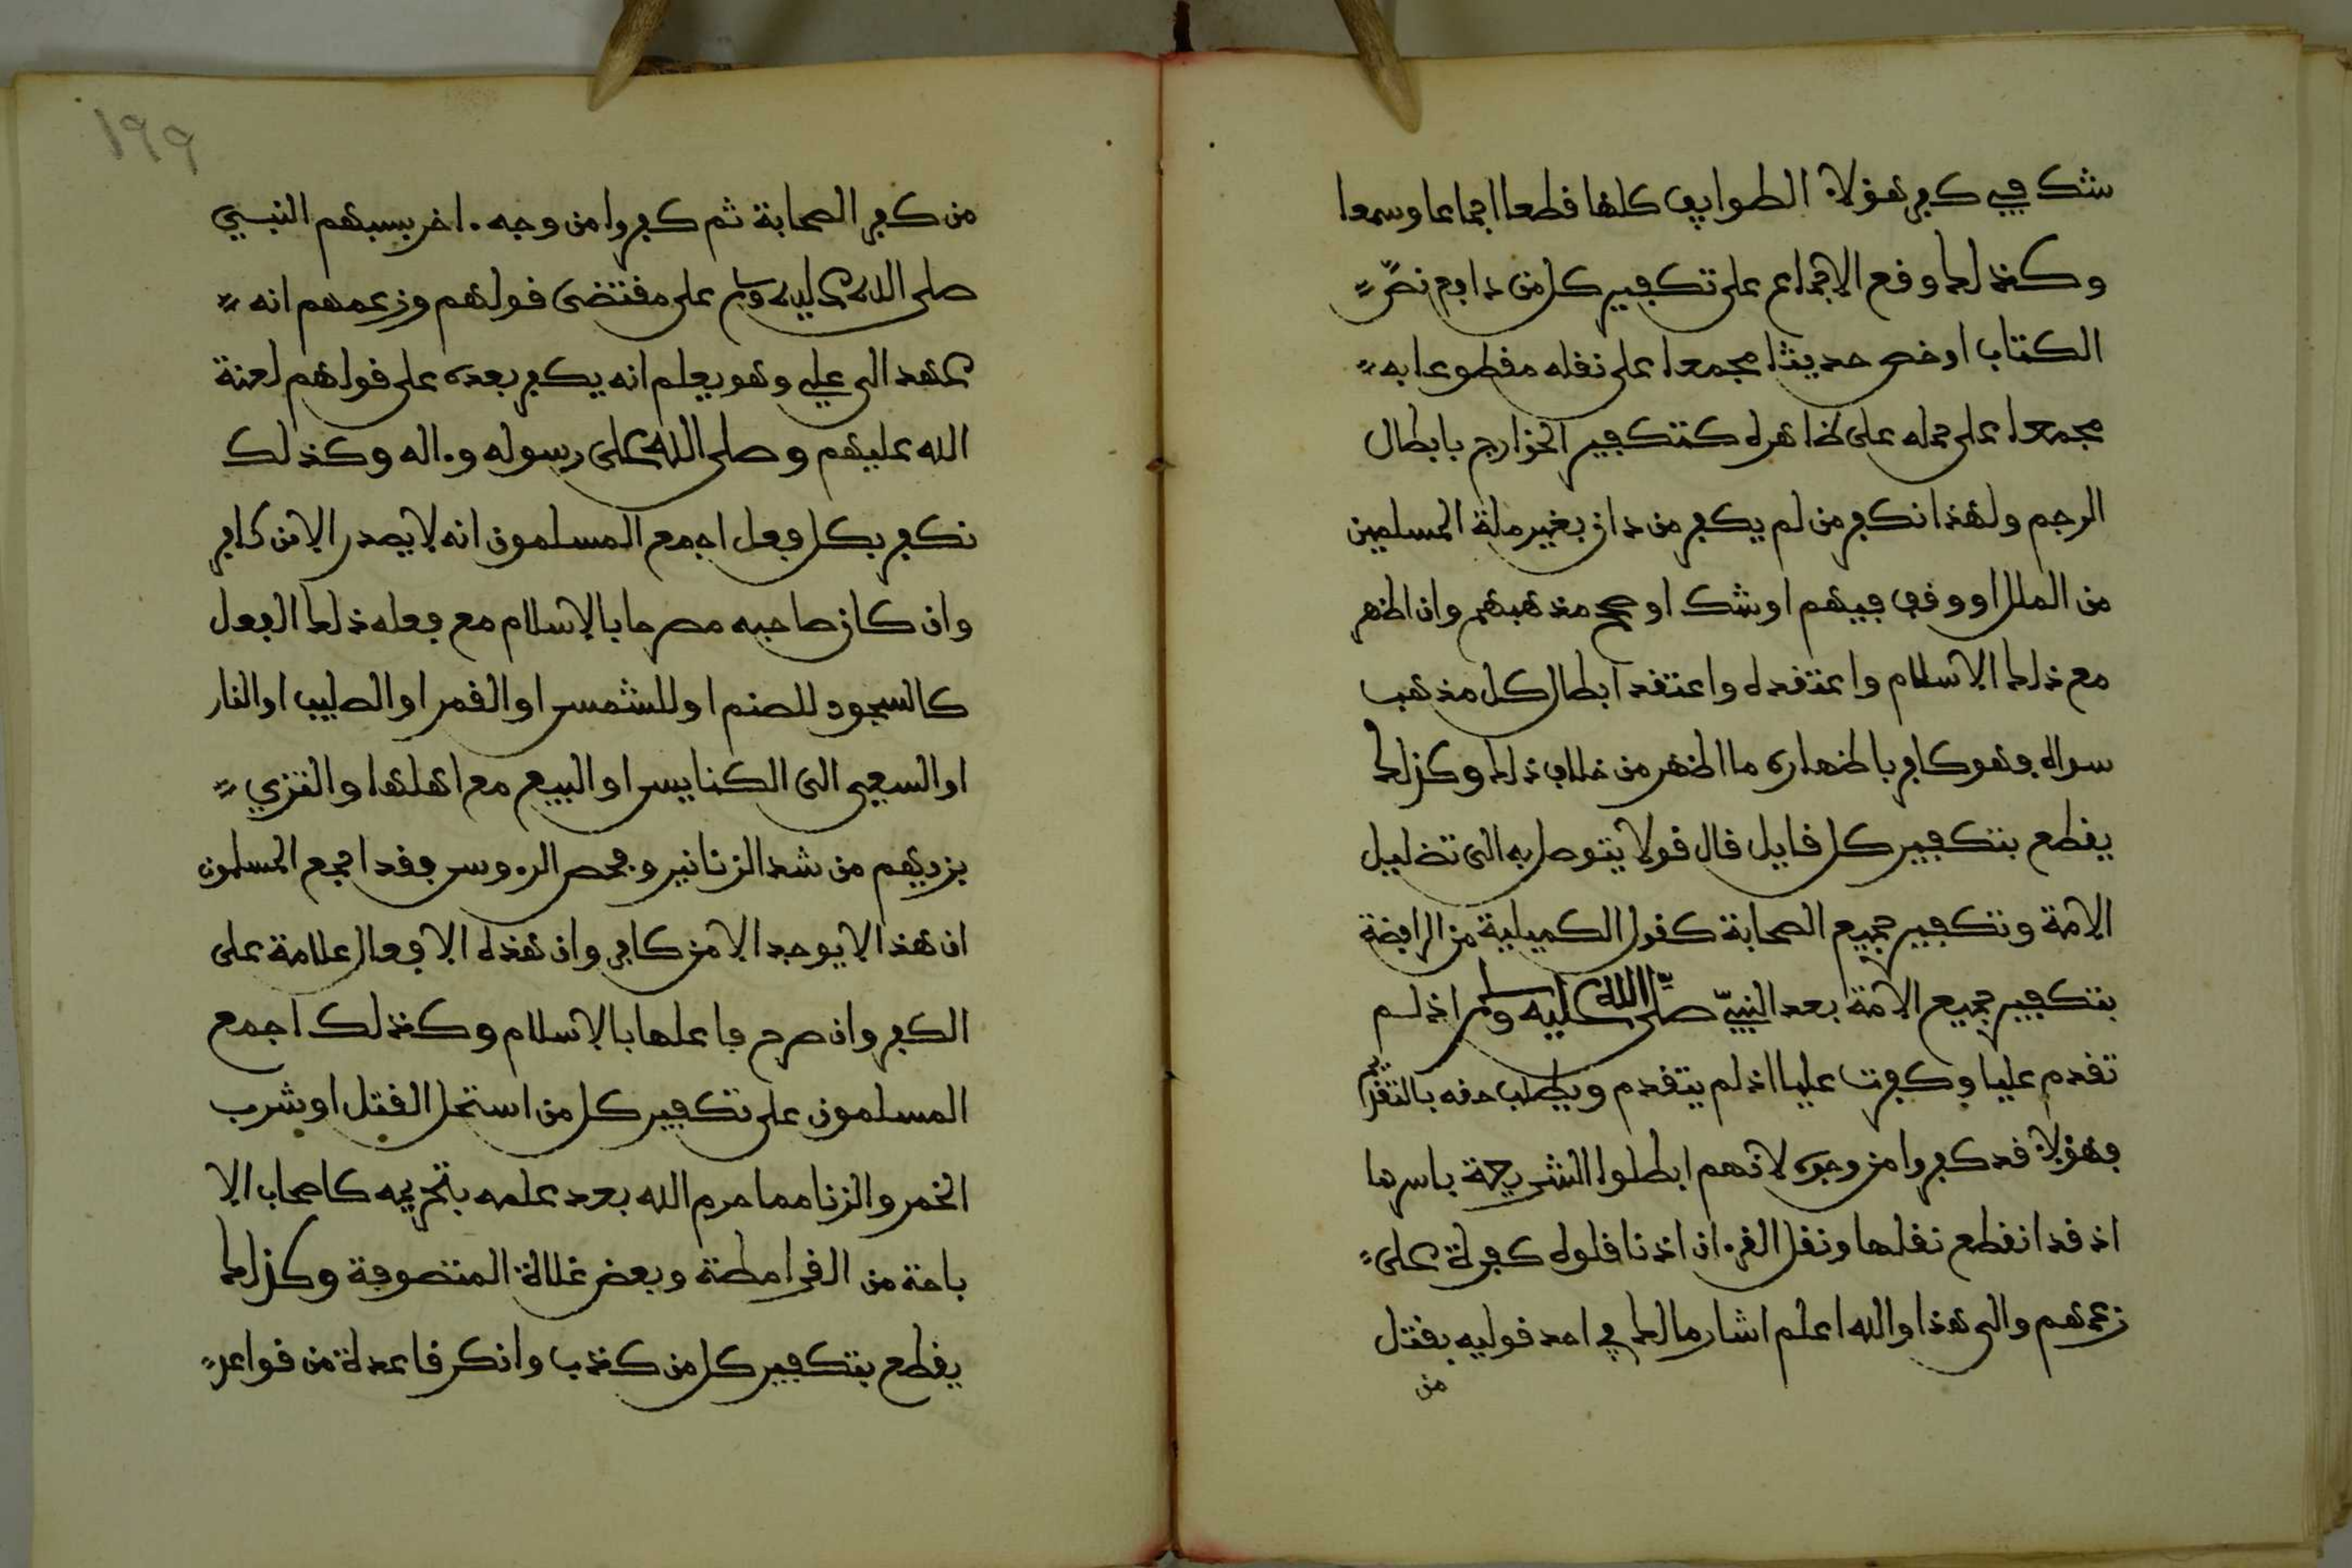 شك في كفر هؤلاء الطوايف كلها قطعا اجماعا وسمعا
وكذلك وقع الاجماع على تكفير كل من دافع نصّ
الكتاب او خص حديثا مجمعا على نقله مقطوعا به
مجمعا على حمله على ظاهره كتكفير الخوارج بابطال
الرجم ولهذا نكفر من لم يكفر من دان بغير ملة المسلمين
من الملل او وقف فيهم او شك او صحح مذهبهم وان اظهر
مع ذلك الاسلام واعتقده واعتقد ابطال كل مذهب
سواه فهو كافر باظهاره ما اظهر من خلاف ذلك وكذلك
يقطع بتكفير كل قايل قال قولا يتوصل به الى تضليل
الامة وتكفير جميع الصحابة كقول الكميلية من الرافضة
بتكفير جميع الامة بعد النبيّ صلّى الله عليه وسلم اذ لم
تقدم عليا وكفرت عليا اذ لم يتقدم ويطلب حقه بالتقديم
فهؤلاء قد كفروا من وجوه لانهم ابطلوا الشريعة باسرها
اذ قد انقطع نقلها ونقل القرءان اذ ناقلوه كفرة على
زعمهم والى هذا والله اعلم اشار مالك في احد قوليه بقتل
من
١٩٩
من كفر الصحابة ثم كفروا من وجه ءاخر بسبهم النبي
صلى الله عليه وسلم على مقتضى قولهم وزعمهم انه
عهد الى علي وهو يعلم انه يكفر بعده على قولهم لعنة
الله عليهم وصلى الله على رسوله وءاله وكذلك
نكفر بكل فعل اجمع المسلمون انه لا يصدر الا من كافر
وان كان صاحبه مصرحا بالاسلام مع فعله ذلك الفعل
كالسجود للصنم او للشمس او القمر او الصليب او النار
او السعي الى الكنايس او البيع مع اهلها والتزي
بزيهم من شد الزنانير وفحص الرءوس فقد اجمع المسلمون
ان هذا لا يوجد الا من كافر وان هذه الافعال علامة على
الكفر وان صرح فاعلها بالاسلام وكذلك اجمع
المسلمون على تكفير كل من استحل القتل او شرب
الخمر والزنا مما حرم الله بعد علمه بتحريمه كاصحاب الا
باحة من القرامطة وبعض غلاة المتصوفة وكذلك
يقطع بتكفير كل من كذب وانكر قاعدة من قواعد